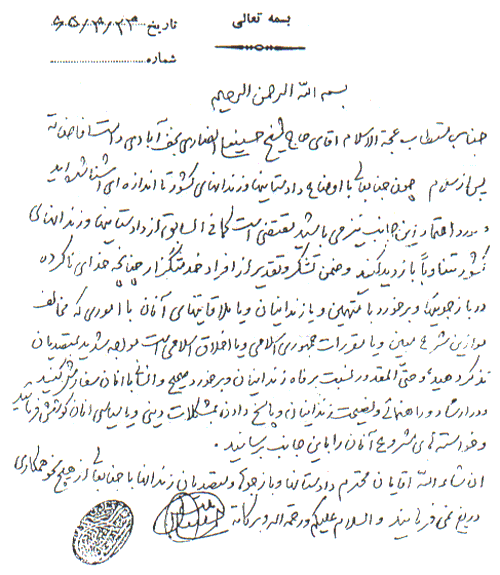 بسمه تعالی
تاریخ ۶۵/۳/۲۳
شماره
بسم الله الرحمن الرحیم
جناب مستطاب حجة الاسلام آقای حاج شیخ حسینعلی انصاری نجف آبادی دامت افاضاته
پس از سلام چون جنابعالی با اوضاع دادستانیها و زندانهای کشور تا اندازه ای آشنا شده اید
و مورد اعتماد این جانب نیز می باشید مقتضی است کما فی السابق از دادستانیها و زندانهای
کشور متناوباً بازدید کنید و ضمن تشکر و تقدیر از افراد خدمتگزار چنانچه خدای ناکرده
در بازجوئیها و برخورد با متهمین و یا زندانیان و یا ملاقاتیهای آنان با اموری که مخالف
موازین شرع مبین و یا مقررات جمهوری اسلامی و یا اخلاق اسلامی است مواجه شدید بمتصدیان
تذکر دهید و حتی المقدور نسبت برفاه زندانیان و برخورد صحیح و انسانی با آنان سفارش کنید
و در ارشاد و راهنمائی و نصیحت زندانیان و پاسخ دادن بمشکلات دینی و سیاسی آنان کوشش فرمائید
و خواسته های مشروع آنان را باین جانب برسانید.
ان شاء الله آقایان محترم دادستانها و بازجوها و متصدیان زندانها با جنابعالی از هیچ نحو همکاری
دریغ نمی فرمایند و السلام علیکم و رحمة الله و برکاته